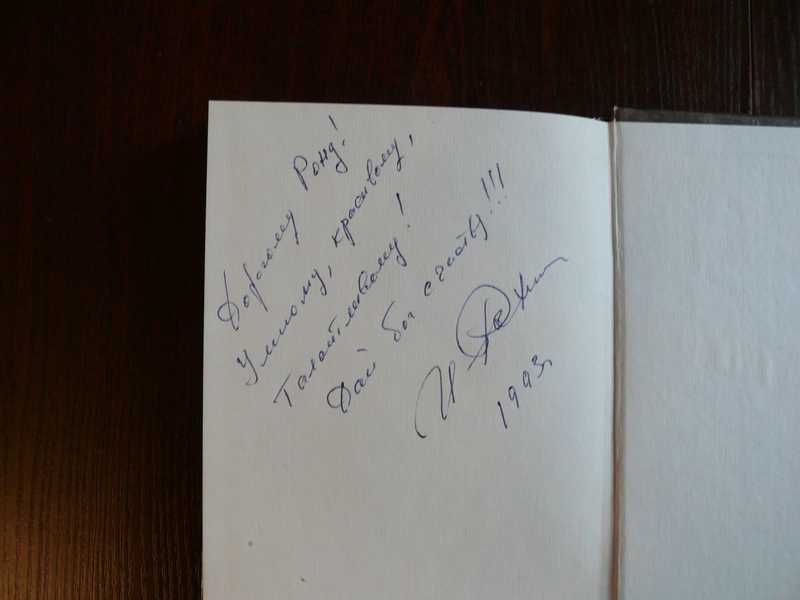 Дорогому Ронд!
Умному, красивому,
Талантливому!
Дай бог счастья!!!
И
1993г